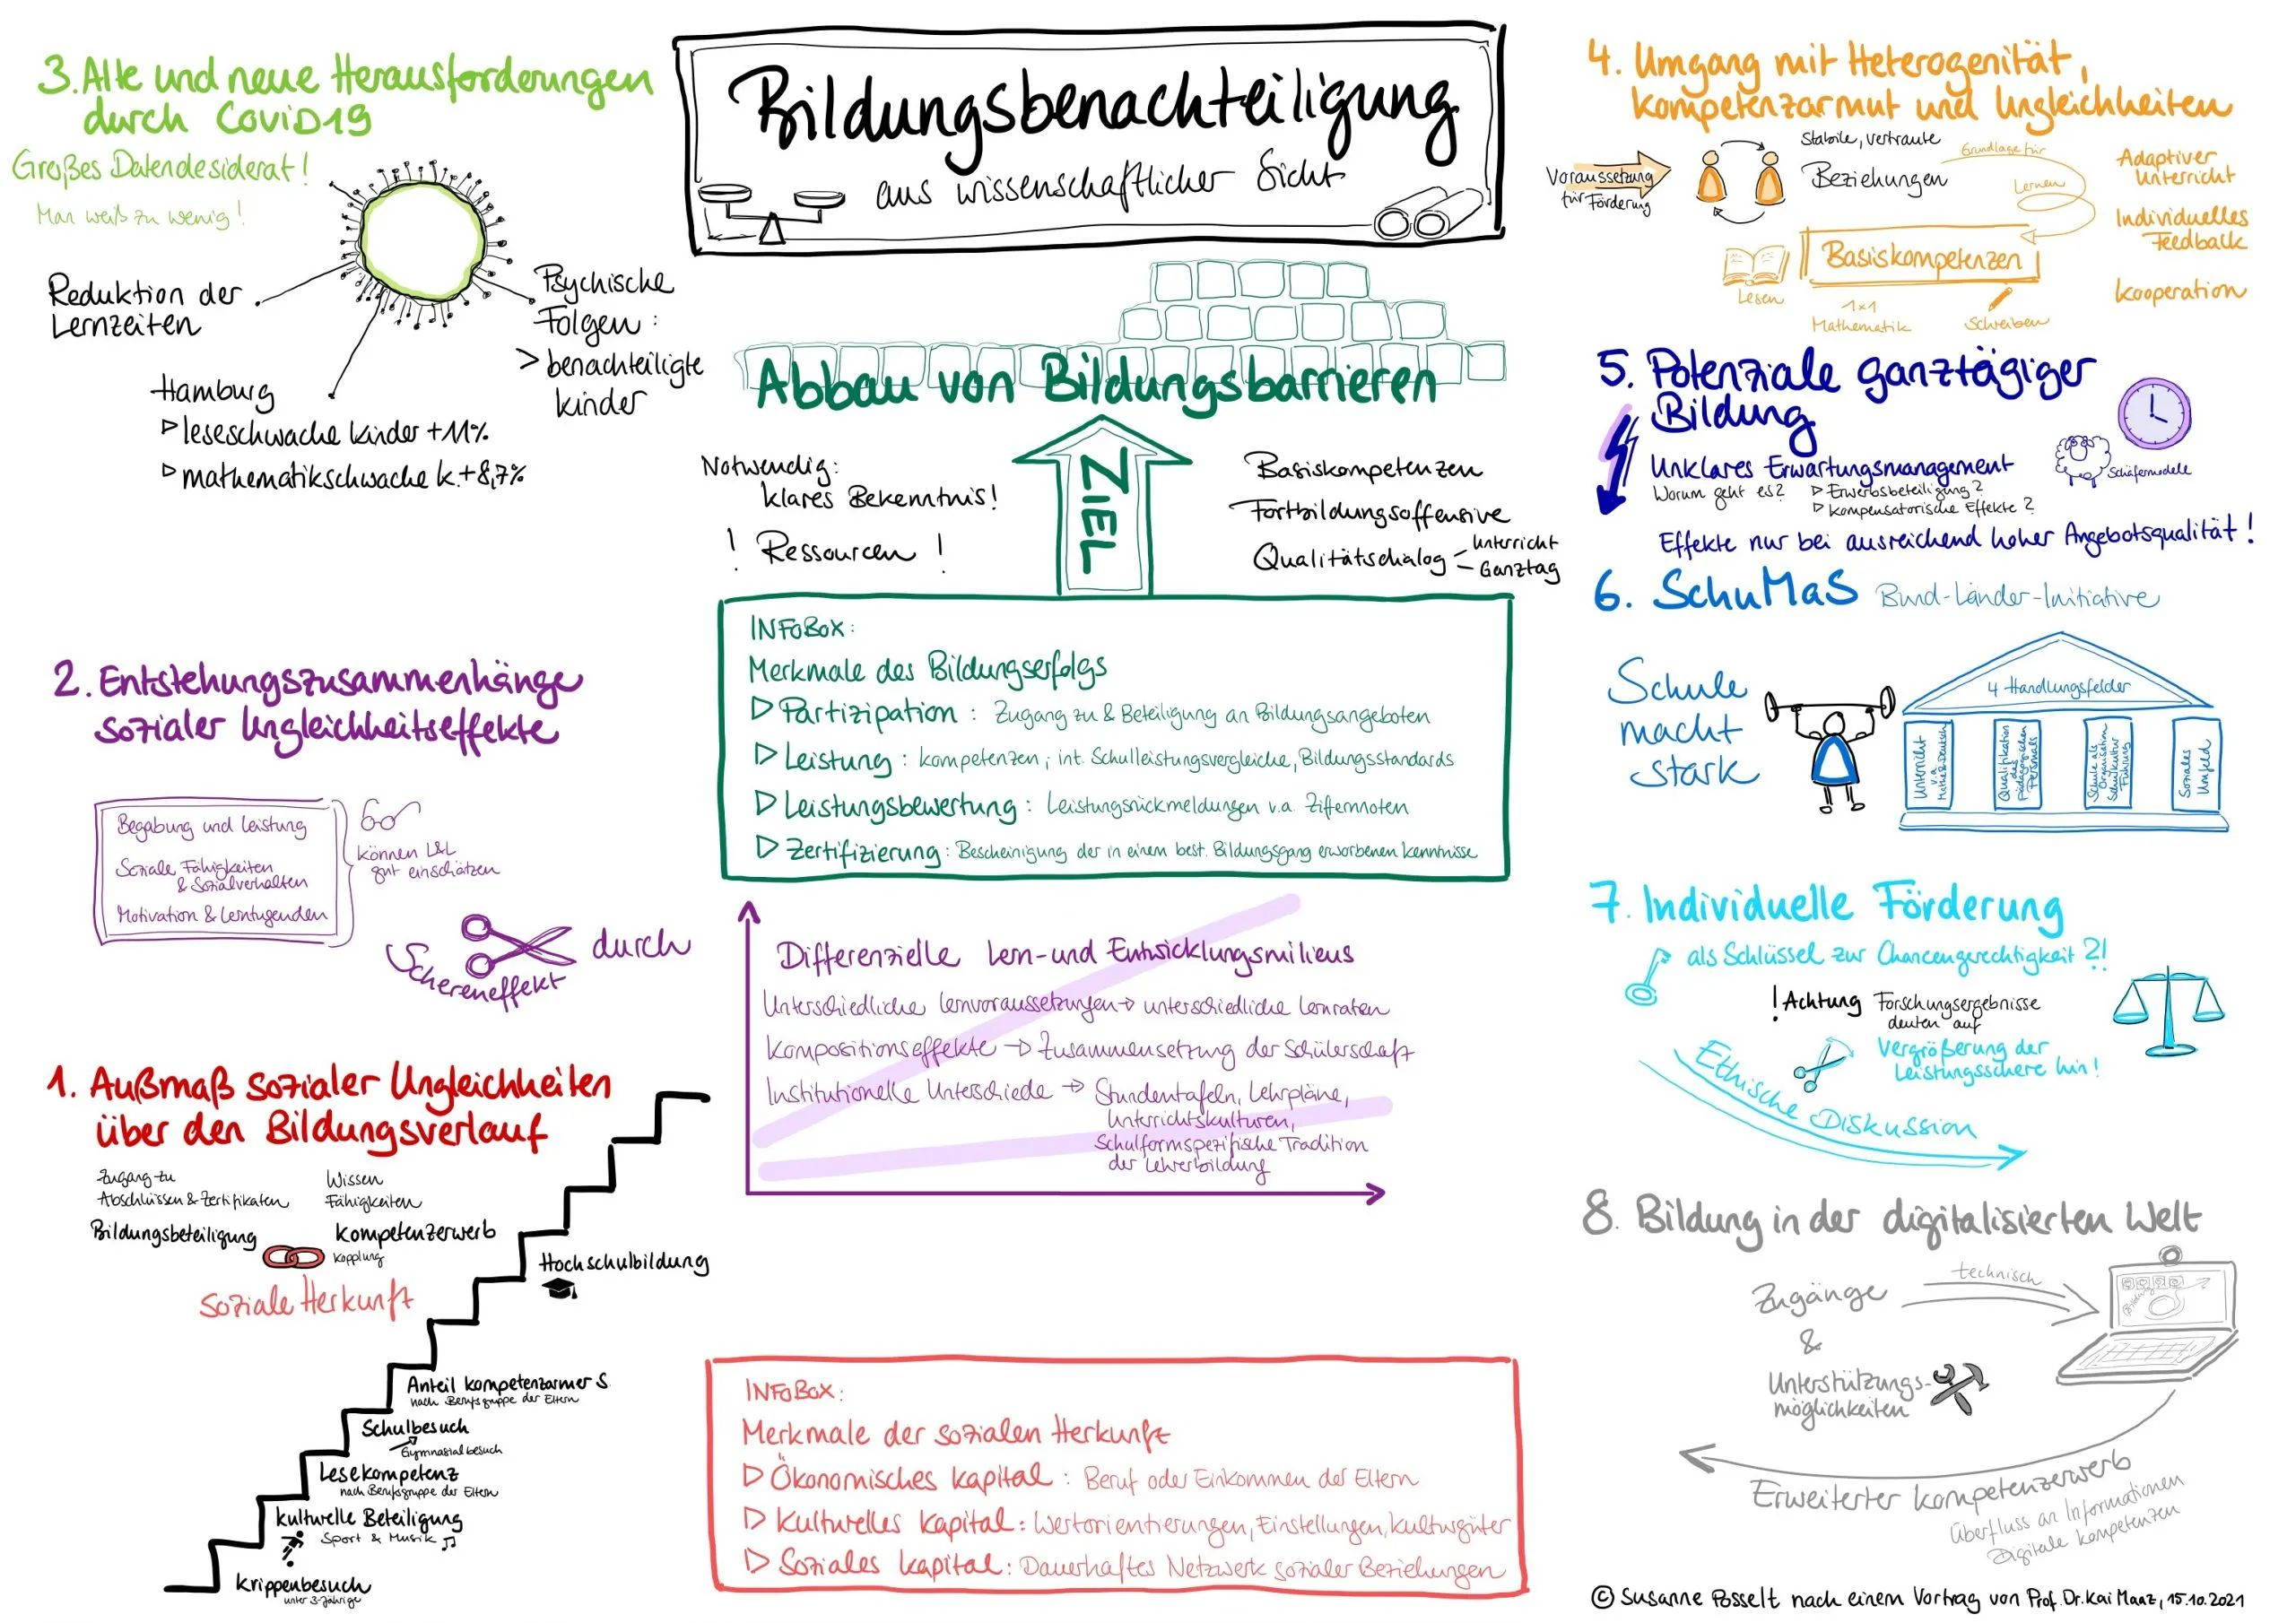 Bildungsbenachteiligung
aus wissenschaftlicher Sicht
3. Alte und neue Herausforderungen
durch CoviD19
Großes Datendesiderat!
Man weiß zu wenig!
Reduktion der
Lernzeiten
Psychische
Folgen:
> benachteiligte
Kinder
Hamburg
▷ leseschwache Kinder +11%
▷ mathematikschwache K. +8,7%
2. Entstehungszusammenhänge
sozialer Ungleichheitseffekte
Begabung und Leistung
Soziale Fähigkeiten
& Sozialverhalten
Motivation & Lerntugenden
können L&L
gut einschätzen
Schereneffekt
durch
1. Außmaß sozialer Ungleichheiten
über den Bildungsverlauf
Zugang zu
Abschlüssen & Zertifikaten
Wissen
Fähigkeiten
Bildungsbeteiligung
Kompetenzerwerb
Kopplung
Soziale Herkunft
Hochschulbildung
Anteil kompetenzarmer S.
nach Berufsgruppe der Eltern
Schulbesuch
Gymnasialbesuch
Lesekompetenz
nach Berufsgruppe der Eltern
kulturelle Beteiligung
Sport & Musik
Krippenbesuch
unter 3-Jährige
Abbau von Bildungsbarrieren
ZIEL
Notwendig:
klares Bekenntnis!
! Ressourcen !
Basiskompetenzen
Fortbildungsoffensive
Qualitätsdialog – Unterricht
– Ganztag
INFOBOX:
Merkmale des Bildungserfolgs
▷ Partizipation: Zugang zu & Beteiligung an Bildungsangeboten
▷ Leistung: Kompetenzen, int. Schulleistungsvergleiche, Bildungsstandards
▷ Leistungsbewertung: Leistungsrückmeldungen v.a. Ziffernnoten
▷ Zertifizierung: Bescheinigung der in einem best. Bildungsgang erworbenen Kenntnisse
Differenzielle Lern- und Entwicklungsmilieus
Unterschiedliche Lernvoraussetzungen → unterschiedliche Lernraten
Kompositionseffekte → Zusammensetzung der Schülerschaft
Institutionelle Unterschiede → Stundentafeln, Lehrpläne,
Unterrichtskulturen,
Schulformspezifische Tradition
der Lehrerbildung
INFOBOX:
Merkmale der sozialen Herkunft
▷ Ökonomisches Kapital: Beruf oder Einkommen der Eltern
▷ Kulturelles Kapital: Wertorientierungen, Einstellungen, Kulturgüter
▷ Soziales Kapital: Dauerhaftes Netzwerk sozialer Beziehungen
4. Umgang mit Heterogenität,
Kompetenzarmut und Ungleichheiten
Voraussetzung
für Förderung
Stabile, vertraute
Beziehungen
Grundlage für
Lernen
Basiskompetenzen
Lesen
1x1
Mathematik
Schreiben
Adaptiver
Unterricht
Individuelles
Feedback
Kooperation
5. Potenziale ganztägiger
Bildung
Unklares Erwartungsmanagement
Worum geht es?
▷ Erwerbsbeteiligung?
▷ Kompensatorische Effekte?
Schäfermodelle
Effekte nur bei ausreichend hoher Angebotsqualität!
6. SchuMaS Bund-Länder-Initiative
Schule
macht
stark
4 Handlungsfelder
Unterricht
v.a.
Mathe & Deutsch
Qualifikation
des
pädagogischen
Personals
Schule als
Organisation
Schulkultur
Führung
Soziales
Umfeld
7. Individuelle Förderung
als Schlüssel zur Chancengerechtigkeit?!
! Achtung Forschungsergebnisse
deuten auf
Vergrößerung der
Leistungsschere hin!
Ethische Diskussion
8. Bildung in der digitalisierten Welt
Zugänge
technisch
&
Unterstützungs-
möglichkeiten
Bildung
Erweiterter Kompetenzerwerb
Überfluss an Informationen
Digitale Kompetenzen
© Susanne Posselt nach einem Vortrag von Prof. Dr. Kai Maaz, 15.10.2021